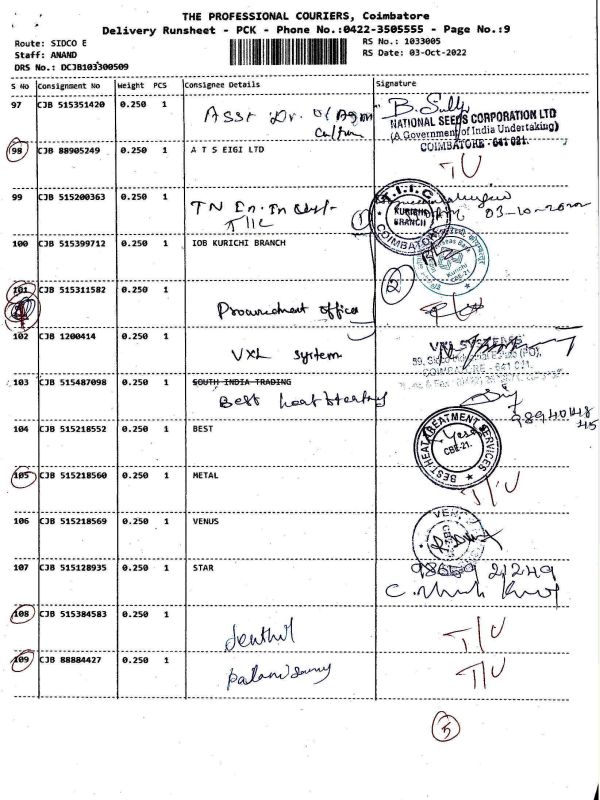 THE PROFESSIONAL COURIERS, Coimbatore
Delivery Runsheet - PCK - Phone No.:0422-3505555 - Page No.:9
Route: SIDCO E
Staff: ANAND
DRS No.: DCJB103300509
RS No.: 1033005
RS Date: 03-Oct-2022
S No Consignment No Weight PCS Consignee Details Signature
97 CJB 515351420 0.250 1 Asst Dr. of Agri
NATIONAL SEEDS CORPORATION LTD
(A Government of India Undertaking)
COIMBATORE - 641 021.
98 CJB 88905249 0.250 1 A T S EIGI LTD T/U
99 CJB 515200363 0.250 1 TN En. In
TIIC
T.I.I.C
KURICHI
BRANCH
COIMBATORE
03-10-2022
1
100 CJB 515399712 0.250 1 IOB KURICHI BRANCH
Kurichi
CBE-21
2
101 CJB 515311582 0.250 1 Procurement officer
102 CJB 1200414 0.250 1 VXL System
VXL SYSTEMS
COIMBATORE - 641 021.
103 CJB 515487098 0.250 1 SOUTH INDIA TRADING
Best heat
9894014845
104 CJB 515218552 0.250 1 BEST
BEST HEAT TREATMENT SERVICES
CBE-21.
105 CJB 515218560 0.250 1 METAL T/U
106 CJB 515218569 0.250 1 VENUS
107 CJB 515128935 0.250 1 STAR
98659 21249
108 CJB 515384583 0.250 1 Senthil T/U
109 CJB 88884427 0.250 1 Palanisamy T/U
5